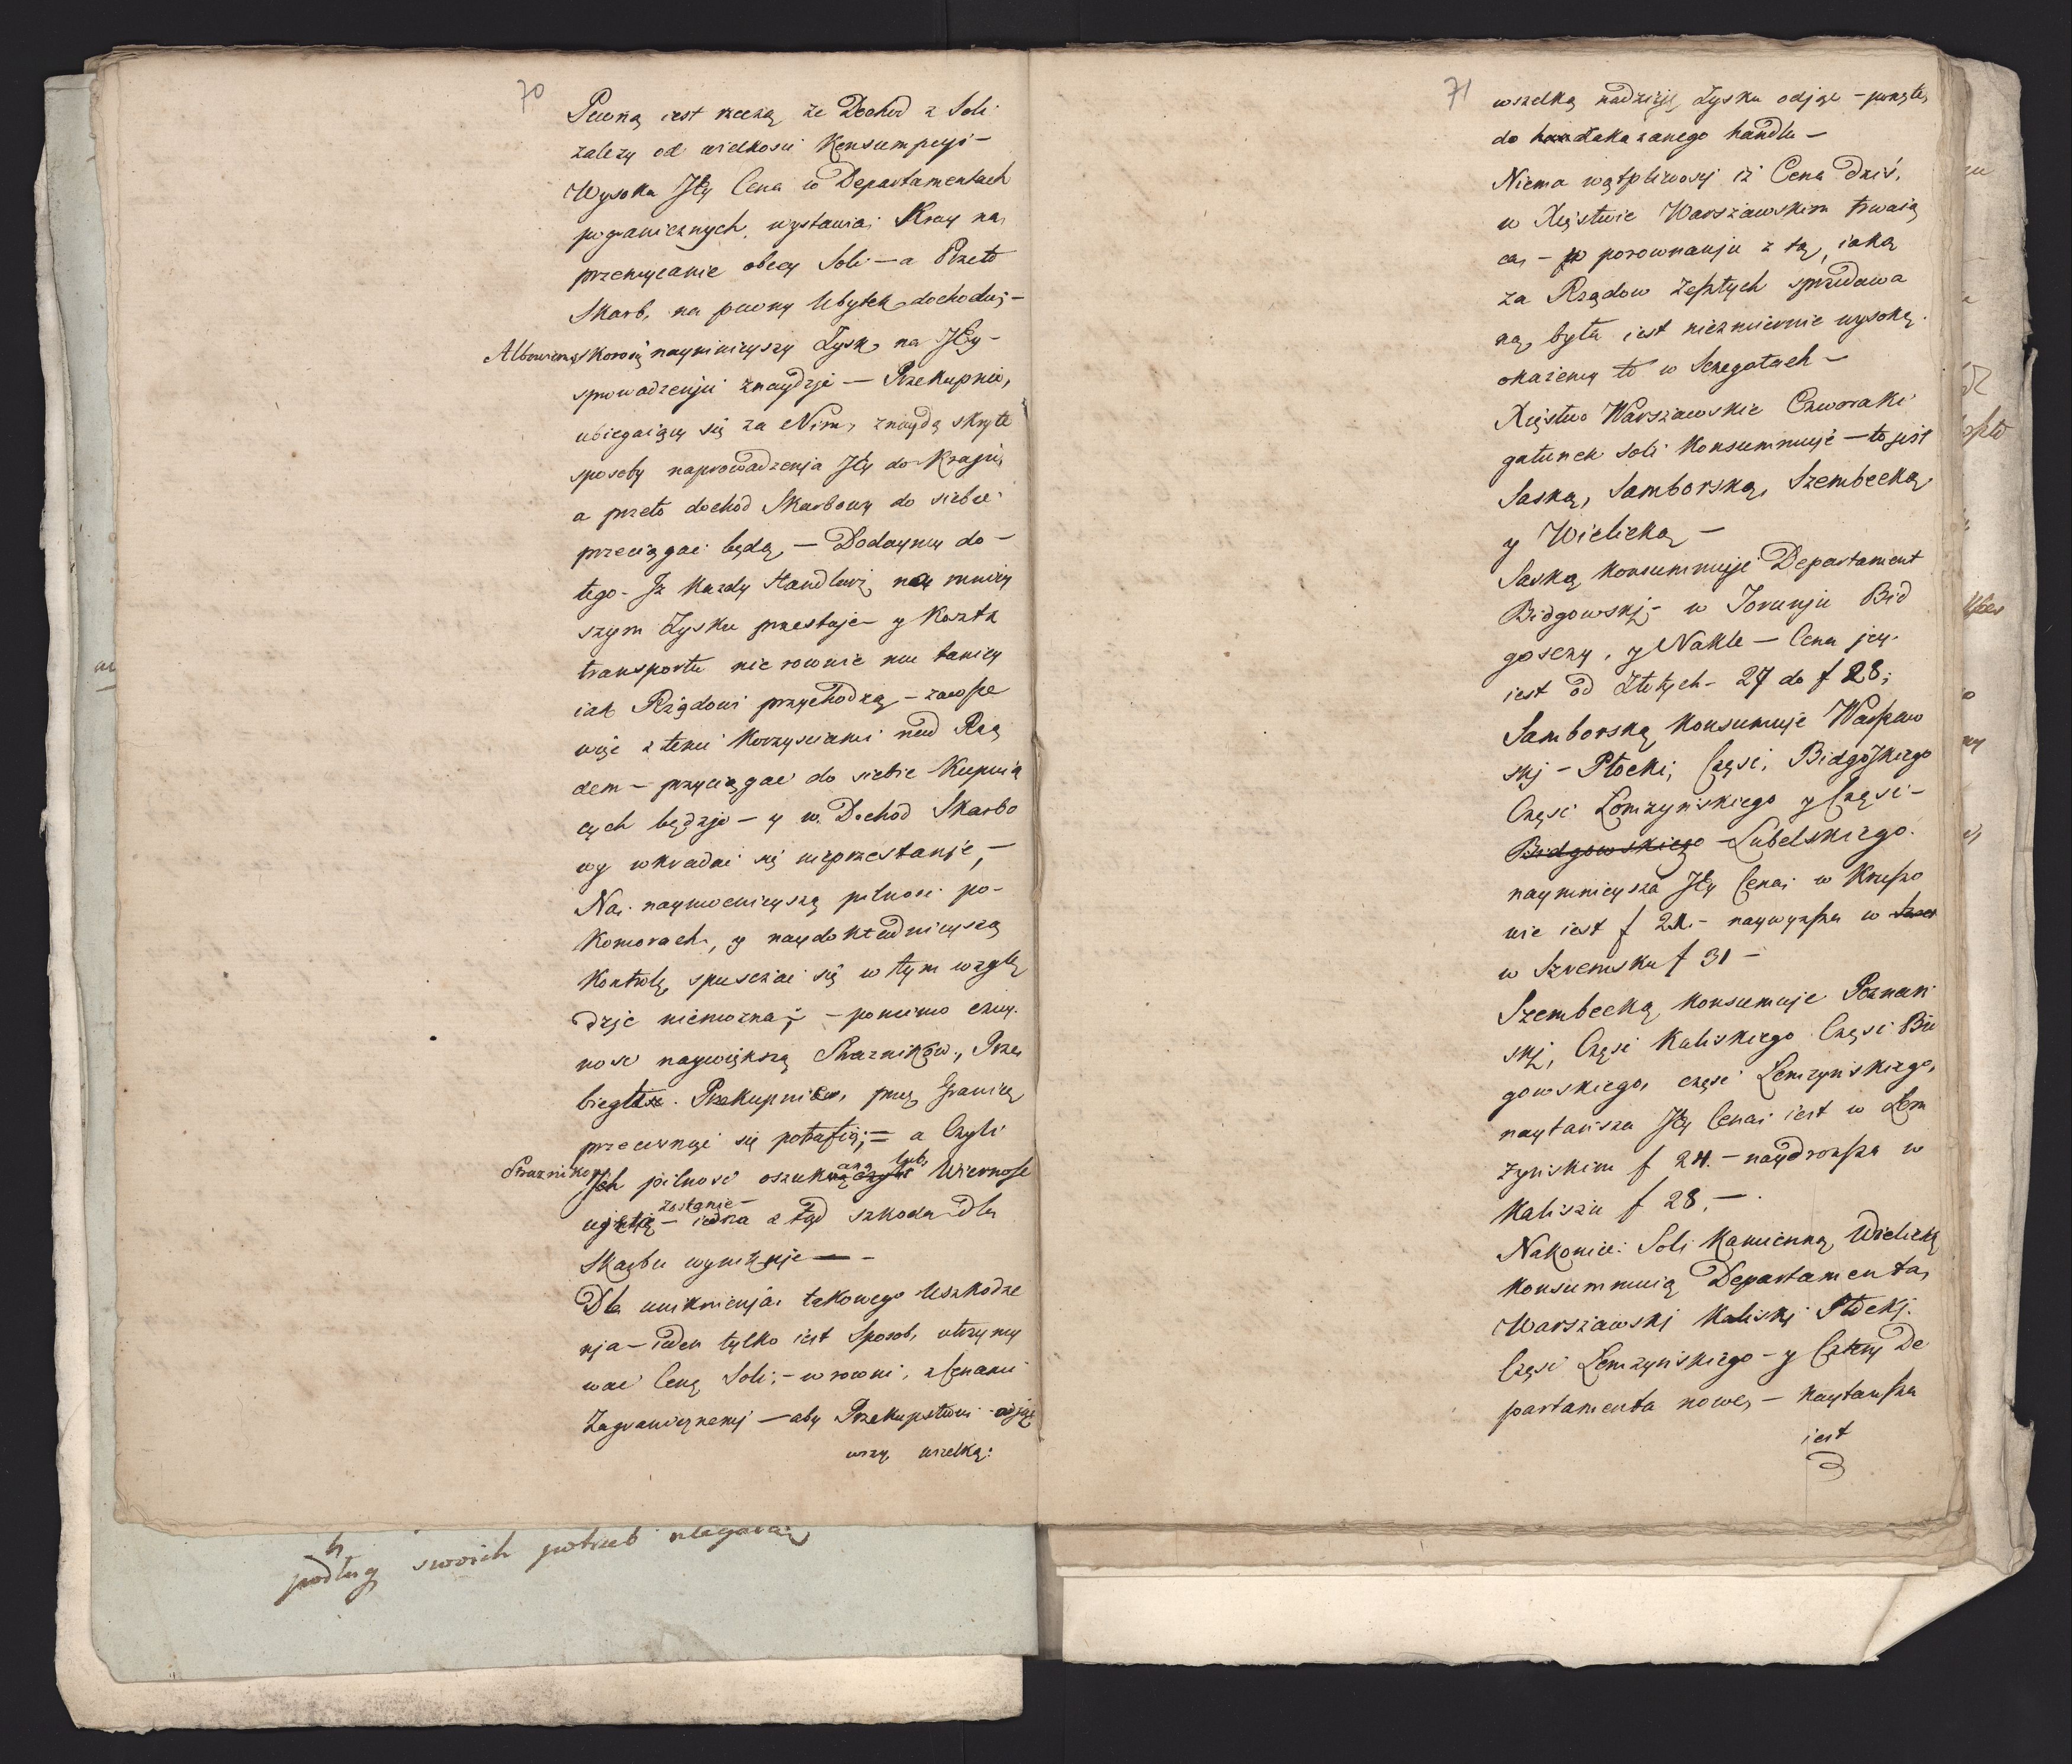 70
Pewną iest rzeczą że Dochod z Soli
zależy od wielkosci Konsumpcyi -
Wysoka Jey Cena w Departamentach
pogranicznych, wystawia Kray na
przemycanie obcey Soli - a Przeto
Skarb, na pewny Ubytek dochodu; -
Albowiem, skoro naymnieyszy Zysk, na Jey -
sprowadzeniu znaydzie - Przekupnie,
ubiegaiący się za Nim, znaydą skryte
sposoby naprowadzenia Jey do Kraju,
a przeto dochod Skarbowy do siebie
przeciągać będą, - Dodaymy do -
tego - Jż każdy Handlarz na mniey
szym Zysku przestaje - y Koszta
transportu nierownie mu taniey
iak Rządowi przychodzą - zawsze
więc z temi Korzysciami nad Rzą
dem - przyciągać do siebie Kupuią
cych będzie - y w Dochod Skarbo
wy wkradać się nieprzestanie, -
Na naymocnieyszą pilnosć po -
Komorach, y naydokładnieyszą
Kontrolę, spuszczać się w tym wzglę
dzie niemożna; - pomimo czuy
nosć naywiększą Strażników, Prze
biegłość Przekupniów, przez Granicę
przecisnąć się potrafią; = a Czyli
Strażników Jch pilność oszukaną lub Wiernosć
ujętą zostanie - iedna z tąd szkoda dla
Skarbu wyniknie - -
Dla uniknienia takowego Uszkodze
nia - ieden tylko iest Sposob, utrzymy
wać Cenę Soli; - w rowni, z Cenami
Zagranicznemi - aby Przekupstwu odjąć
wszy wszelką:
71
wszelką nadzieję Zysku odjąć - ponętę,
do han Zakazanego handlu -
Niema wątpliwosci iż Cena dziś,
w Xięstwie Warszawskim trwaią
ca, - w porownaniu z tą, iaką
za Rządow Zeszłych sprzedawa
ną, była iest niezmiernie wysoką.
okażemy to w Szczegołach -
Xięstwo Warszawskie Czworaki
gatunek Soli Konsummuje - to jest
Saską, Samborską, Szembecką,
y Wielicką -
Saską Konsummuje Departament
Bidgowski; - w Toruniu Bid
goszczy, y Nakle - Cena jey
iest od Złotych - 27 do f 28;
Samborską Konsumuje Warszaw
ski - Płocki, Część, Bidgoskiego
Część Łomżyńskiego y Część -
Bidgowskiego - Lubelskiego.
naymnieysza Jey Cena w Kruszo
wie iest f 21. - naywyższa w
w Szremsku f 31 -
Szembecką Konsumuje Poznań
ski, Część Kaliskiego Część Bid
gowskiego, część Łomżyńskiego,
naytańsza Jey Cena iest w Łom
żyńskim f 24. - naydroższa w
Kaliszu f 28, -
Nakoniec: Soli Kamienną Wielicką
Konsummuią Departamenta,
Warszawski Kaliski Płocki.
Część Łomżyńskiego - y Cztery De
partamenta nowe, - Naytańsza
iest
podług swoich potrzeb